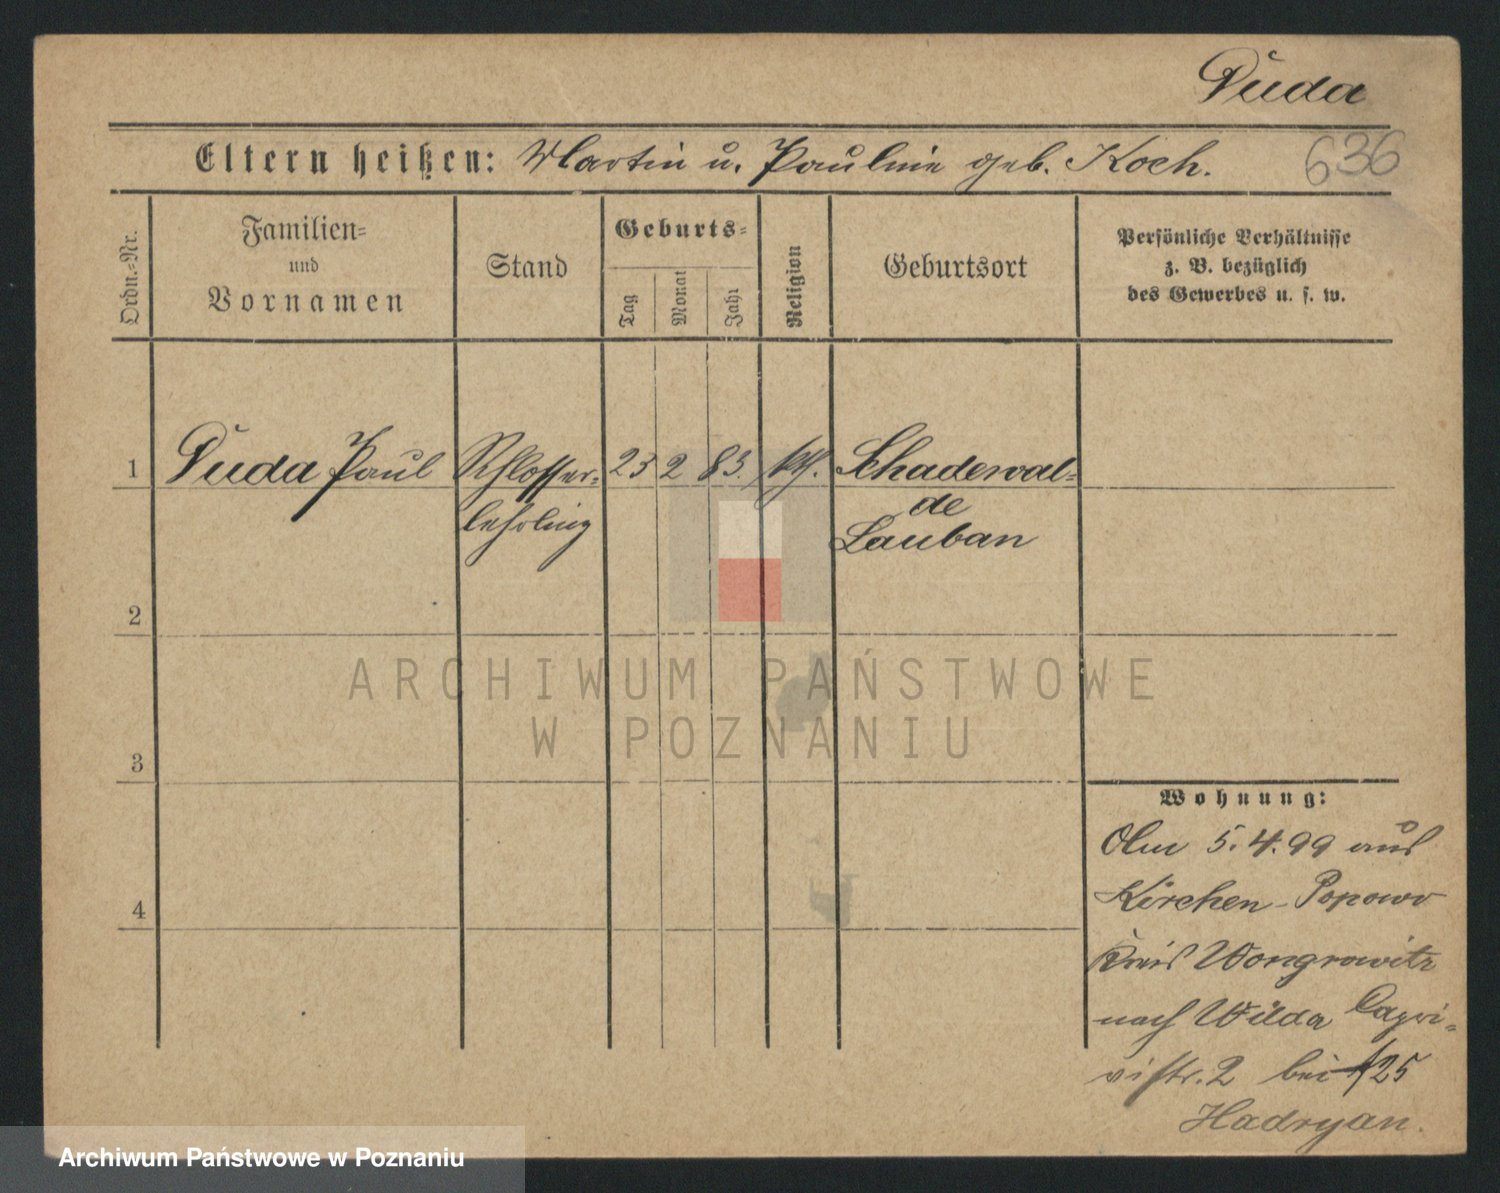 Duda
Eltern heißen: Martin u. Pauline geb. Koch.
636
Ordn.-Nr.
Familien-
und
Vornamen
Stand
Geburts-
Tag
Monat
Jahr
Religion
Geburtsort
Persönliche Verhältnisse
z. B. bezüglich
des Gewerbes u. s. w.
1 Duda Paul Schlosser- 23 2 83. kth. Schadewal-
lehrling de
Lauban
2
3
4
ARCHIWUM PAŃSTWOWE
W POZNANIU
Wohnung:
Am 5.4.99 aus
Kirchen-Popowo
Kreis Wongrowitz
nach Wilda Capri-
vistr. 2 bei 25
Hadryan.
Archiwum Państwowe w Poznaniu